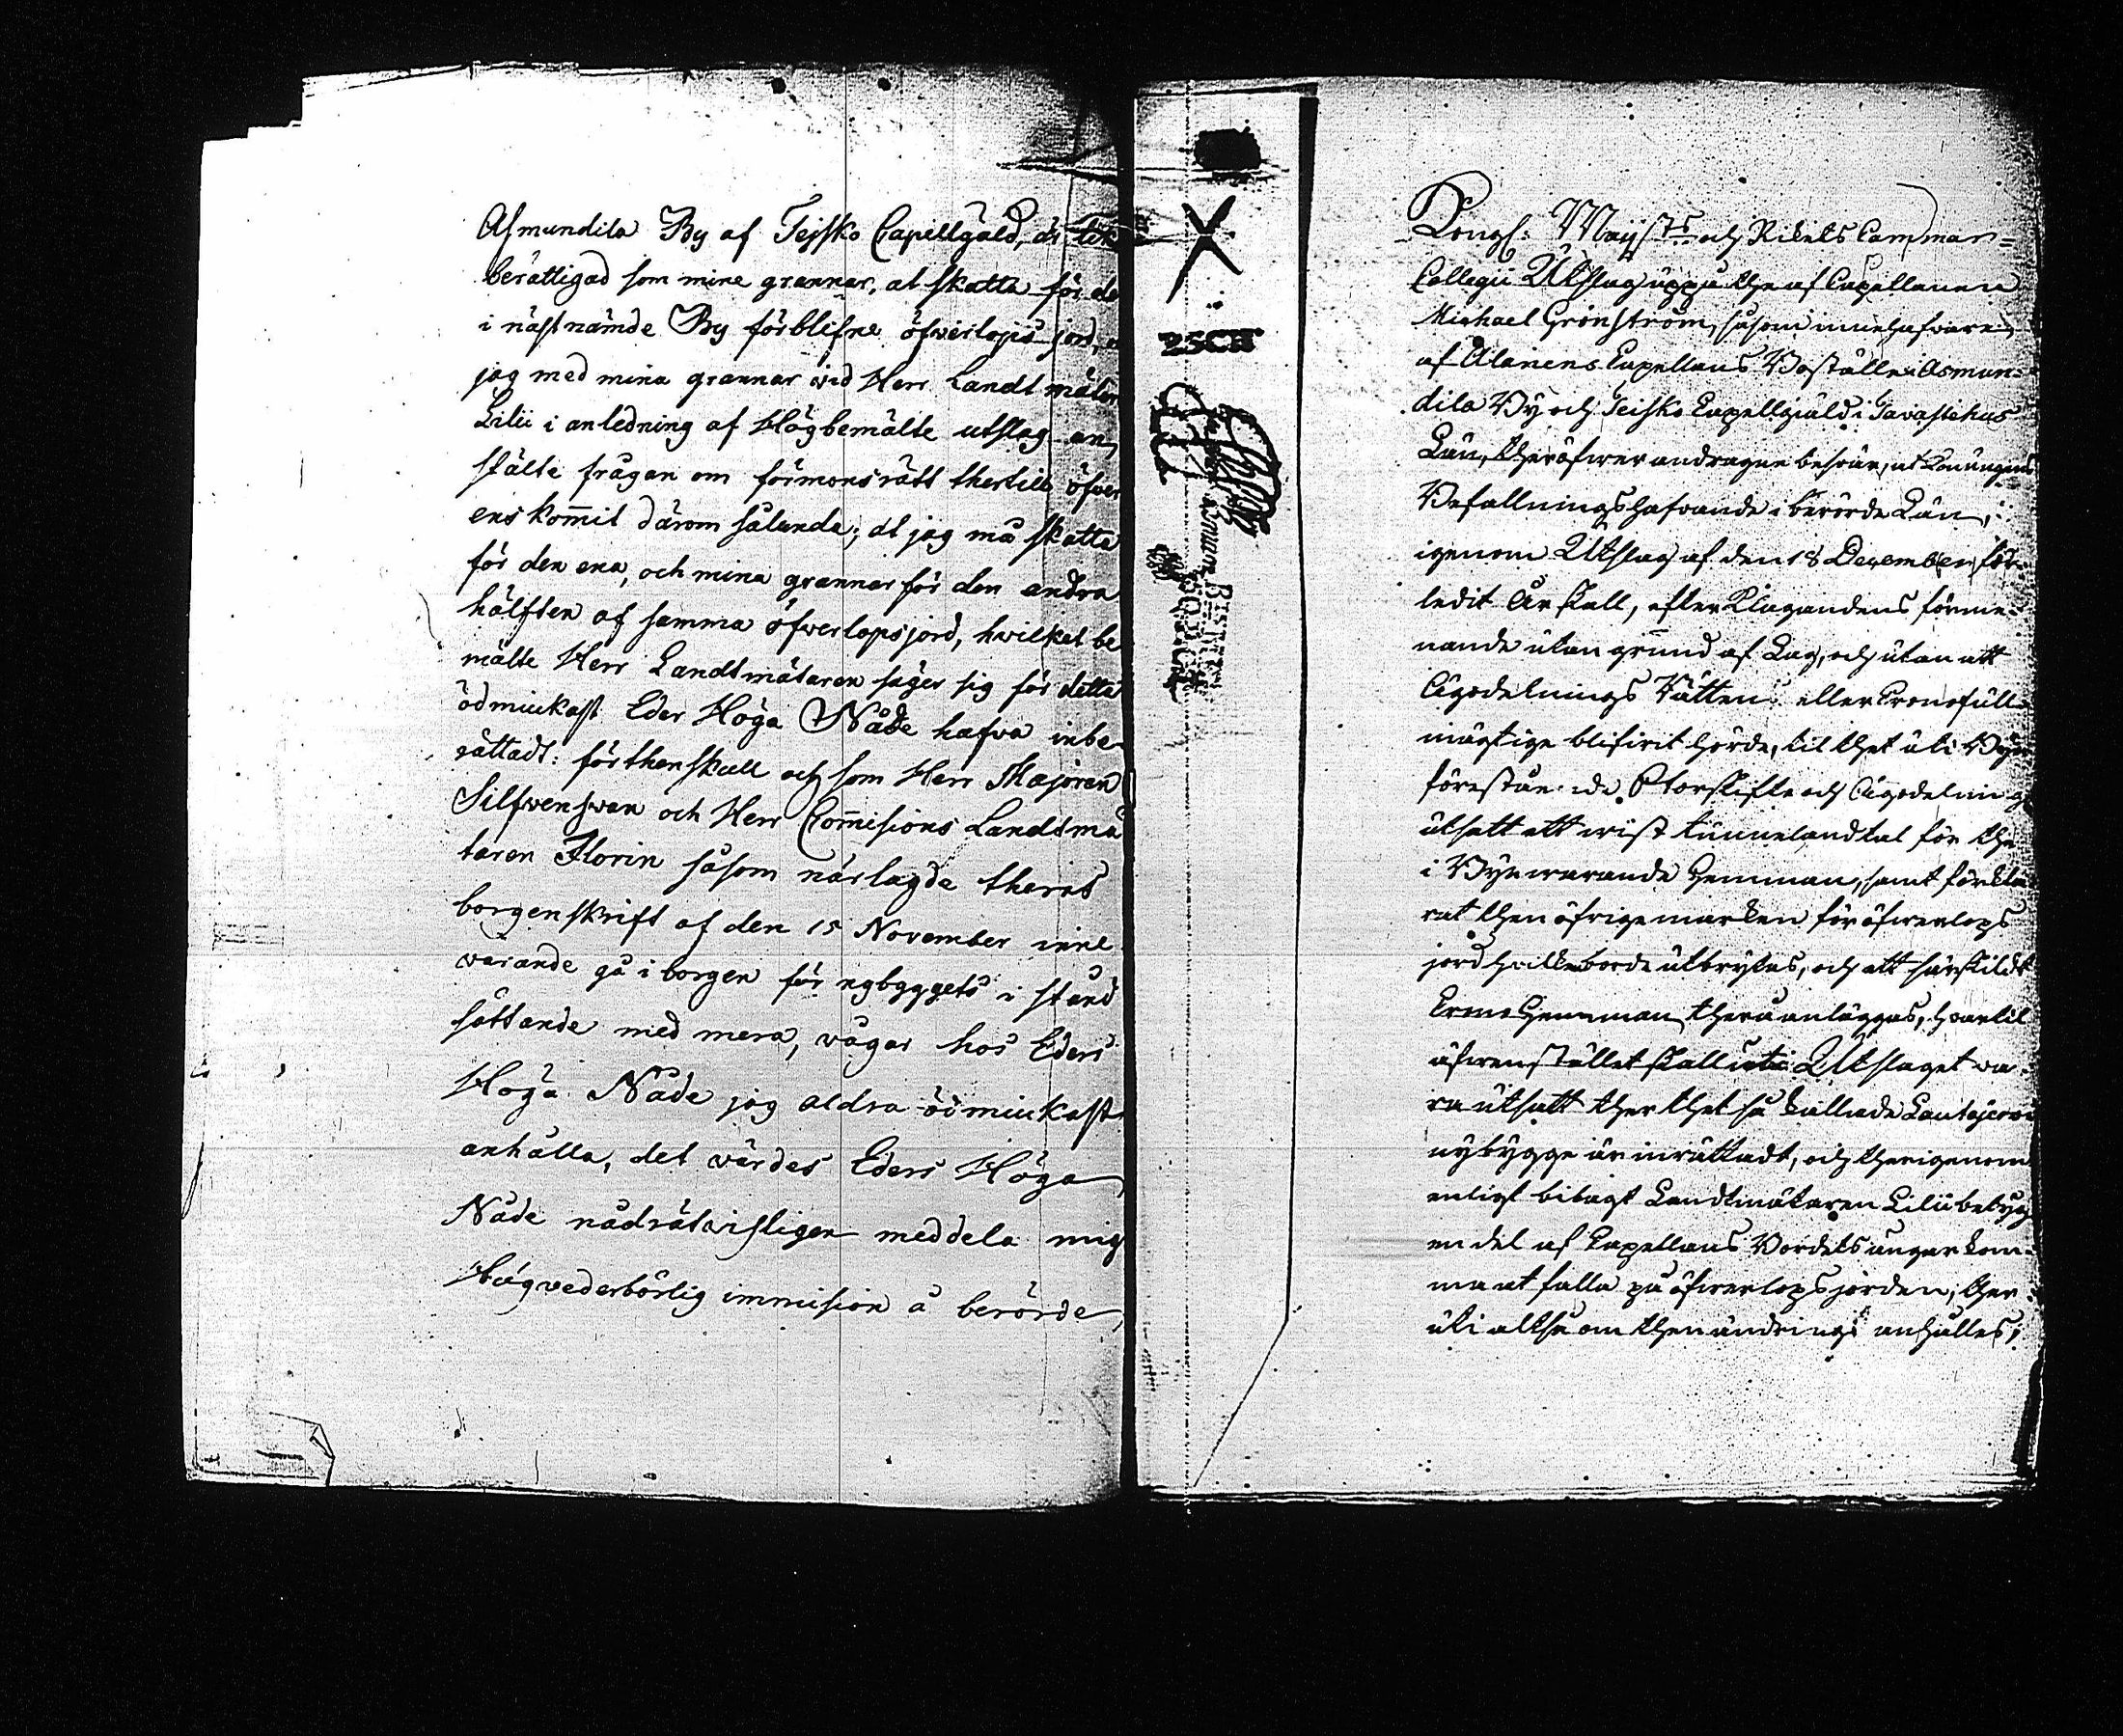 Asmundila By af Tejsko Capellgäld, är lik
berättigad som mine grannar, at skatta för de
i näst nämde By förblifne öfwerlops jord,
jag med mina grannar wid Herr Landtmätar
Lilii i anledning af Högbemälte utslag an
stälte frågan om förmonsrätt thertill öfver
enskom̄it därom sålunda; at jag må skatta
för den ena, och mina grannar för den andra
hälften af samma öfverlopsjord, hvilket be
mälte Herr Landtmätaren säger sig för detta
ödmiukast Eder Höga Nåde hafva inbe-
rättadt: förthenskull och som Herr Majoren
Silfwenswan och Herr Com̄isions Landtmä
taren Florin såsom närlagde theras
borgenskrift af den 15 November inne
warande gå i borgen för nybyggets i stånd
sättande med mera, vågar hos Eders
Höga Nåde jag aldra ödmiukast
anhålla, det wärdes Eders Höga
Nåde nådrätwisligen meddela mig
Högvederbörlig immision å berörde
X
25CH
Kongl: Maij:ts och Rikets Cammar=
Collegii Utslag uppå the af Capellanen
Michael Grönström, såsom innehafware
af Alanens Capellans Boställe i Asmun=
dila By och Teisko Capellgiäld i Tavastehus
Län, theröfwer andragne beswär, at Konungens
Befallningshafvande i berörde Län,
igenom Utslag af den 18 December för=
ledit År skall, efter Klagandens förme=
nande utan grund af Lag, och utan att
Ägodelnings Rätten eller Cronofull=
mägtige blifwit hörde, til thet uti Byn
förestående Storskifte och Ägodelning
utsatt ett wist tunnelandtal för the
i Byn warande Hemman, samt förkla
rat then öfrige marken för öfwerlops
jord hvilken borde utbrytas, och ett särskildt
Crono Hemman therå anläggas, hvartil
äfwen stället skall uti Utslaget wa=
ra utsatt ther thet så kallade Lautajerwi
nybygge är inrättadt, och therigenom
enligt bilagt Landtmätaren Lilii betyg
en del af Capellans Bordets ängar kom=
ma at falla på öfwerlopsjorden; ther=
uti altså om then ändring anhålles,